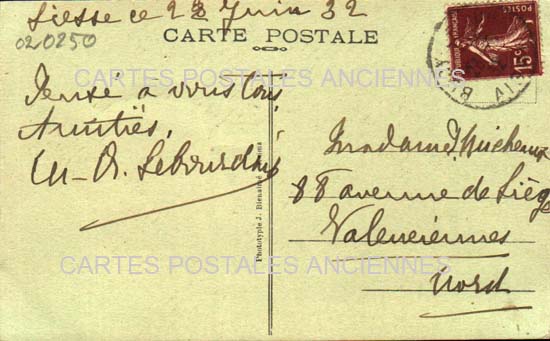 Liesse ce 28 Juin 32
020250
CARTE POSTALE
CARTES POSTALES ANCIENNES
Pensé a vous tous
Amitiés,
Phototypie J. Bienaimé
POSTES
REPUBLIQUE FRANÇAISE
15c
Madame Micheaux
88 avenue de Liège
Valenciennes
Nord
CARTES POSTALES ANCIENNES